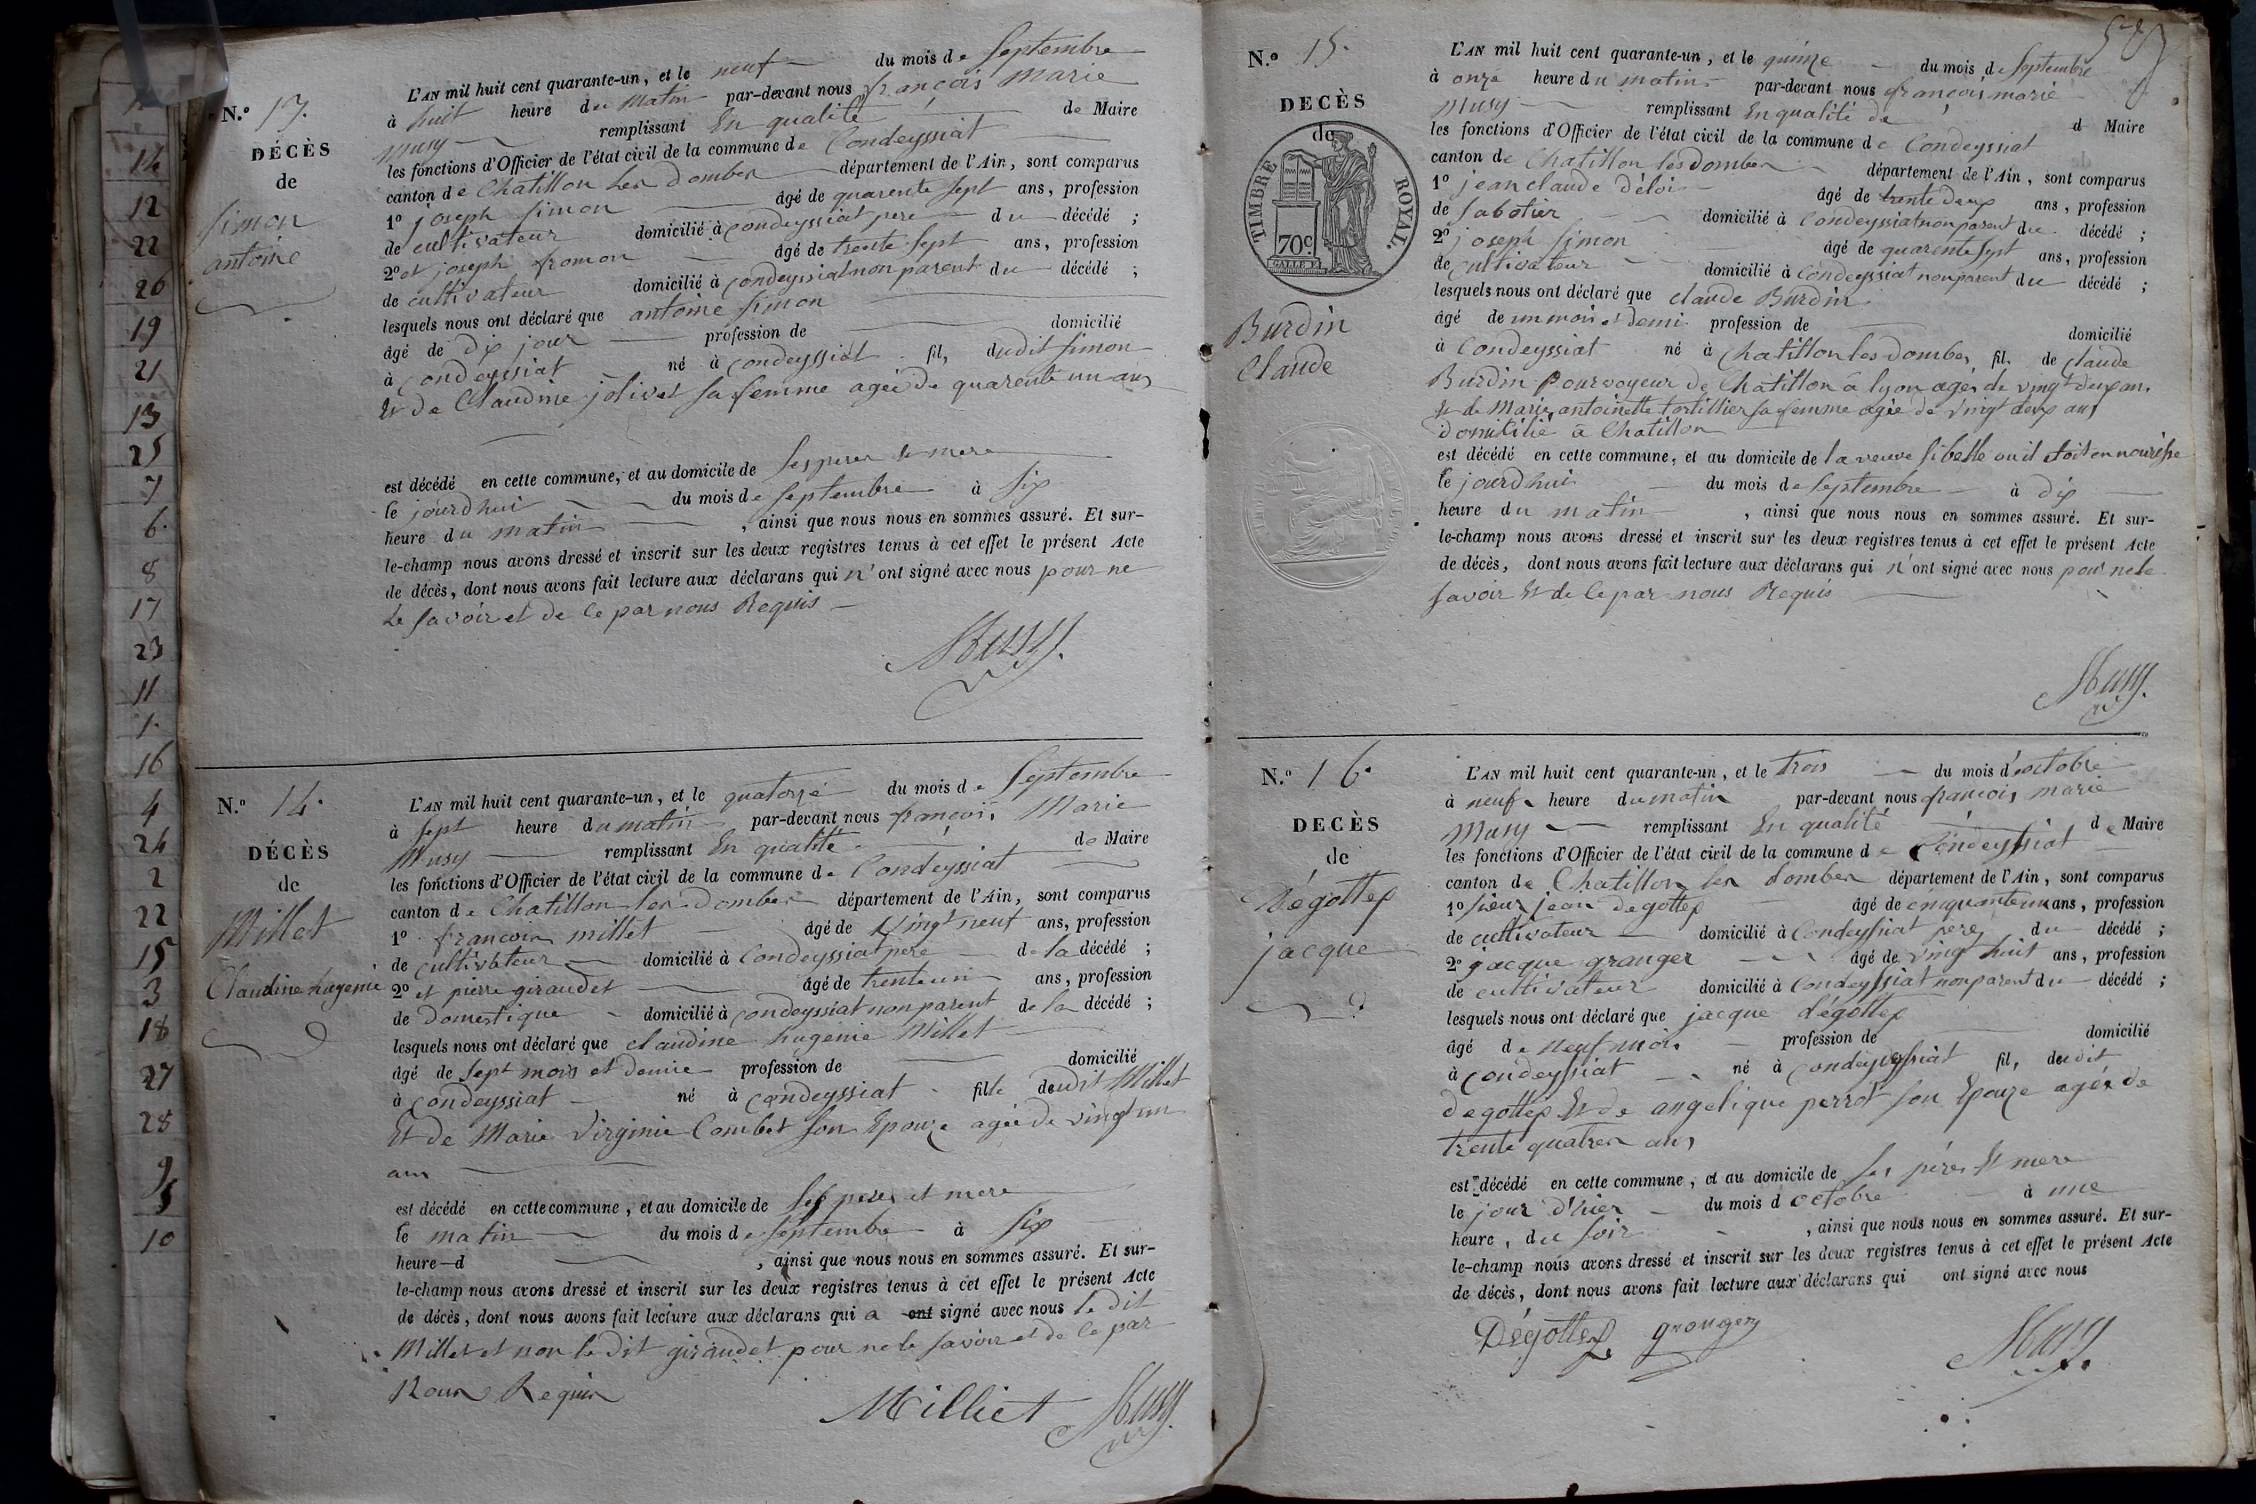 N.o 13.
DÉCÈS
de
Simon
antoine
L'AN mil huit cent quarante-un, et le neuf du mois de Septembre
à huit heure du Matin par-devant nous françois Marie
Musy remplissant En qualité de Maire
les fonctions d'Officier de l'état civil de la commune de Condeyssiat
canton de Chatillon les dombes département de l'Ain, sont comparus
1o joseph Simon âgé de quarente sept ans, profession
de cultivateur domicilié à Condeyssiat pere du décédé ;
2o et joseph fromon âgé de trente sept ans, profession
de cultivateur domicilié à Condeyssiat non parent du décédé ;
lesquels nous ont déclaré que antoine Simon
âgé de dix jour profession de domicilié
à Condeyssiat né à Condeyssiat fil, dudit Simon
Et de Claudine jolivet sa femme agée de quarente un ans
est décédé en cette commune, et au domicile de Ses peres et mere
le jourd'hui du mois de Septembre à Six
heure du matin , ainsi que nous nous en sommes assuré. Et sur-
le-champ nous avons dressé et inscrit sur les deux registres tenus à cet effet le présent Acte
de décès, dont nous avons fait lecture aux déclarans qui n'ont signé avec nous pour ne
Le Savoir et de Ce par nous Requis
Musy.
N.o 14.
DÉCÈS
de
Millet
Claudine hugenie
L'AN mil huit cent quarante-un, et le quatorze du mois de Septembre
à Sept heure du matin par-devant nous françois Marie
Musy remplissant En qualité de Maire
les fonctions d'Officier de l'état civil de la commune de Condeyssiat
canton de Chatillon les Dombes département de l'Ain, sont comparus
1o françois millet âgé de Vingt neuf ans, profession
de cultivateur domicilié à Condeyssiat pere de la décédé ;
2o et pierre giraudet âgé de trente un ans, profession
de domestique domicilié à Condeyssiat non parent de la décédé ;
lesquels nous ont déclaré que claudine hugenie Millet
âgé de Sept mois et demie profession de domicilié
à Condeyssiat né à Condeyssiat fille dudit Millet
Et de Marie Virginie Combet Son Epouze agée de vingt un
ans
est décédé en cette commune, et au domicile de Ses peres et mere
le matin du mois de Septembre à Six
heure d , ainsi que nous nous en sommes assuré. Et sur-
le-champ nous avons dressé et inscrit sur les deux registres tenus à cet effet le présent Acte
de décès, dont nous avons fait lecture aux déclarans qui a ont signé avec nous le dit
Millet et non le Dit giraudet pour ne le Savoir et de Ce par
Nous Requis
Milliet Musy.
N.o 15.
DECÈS
de
TIMBRE ROYAL.
70c
GALLE F.
Burdin
Claude
L'AN mil huit cent quarante-un, et le quinze du mois de Septembre
à onze heure du matin par-devant nous françois marie
Musy remplissant En qualité de d Maire
les fonctions d'Officier de l'état civil de la commune de Condeyssiat
canton de Chatillon les Dombes département de l'Ain, sont comparus
1o jean claude déloi âgé de trente deux ans, profession
de Sabotier domicilié à Condeyssiat non parent du décédé ;
2o joseph Simon âgé de quarente Sept ans, profession
de cultivateur domicilié à Condeyssiat non parent du décédé ;
lesquels nous ont déclaré que claude Burdin
âgé de un mois et demi profession de domicilié
à Condeyssiat né à Chatillon les Dombes fil, de Claude
Burdin pourvoyeur de Chatillon à lyon agés de vingt deux ans
Et de Marie antoinette tortillier sa femme agée de Vingt deux ans
domicilié à Chatillon
est décédé en cette commune, et au domicile de la veuve Sibelle ou il etoit en nourisse
le jourd'hui du mois de Septembre à dix
heure du matin , ainsi que nous nous en sommes assuré. Et sur-
le-champ nous avons dressé et inscrit sur les deux registres tenus à cet effet le présent Acte
de décès, dont nous avons fait lecture aux déclarans qui n'ont signé avec nous pour ne le
Savoir Et de Ce par nous Requis
Musy.
N.o 16.
DECÈS
de
Dégottex
jacque
L'AN mil huit cent quarante-un, et le trois du mois d'octobre
à neuf heure du matin par-devant nous françois marie
Musy remplissant En qualité de Maire
les fonctions d'Officier de l'état civil de la commune de Condeyssiat
canton de Chatillon les dombes département de l'Ain, sont comparus
1o Sieur jean Degottex âgé de cinquante un ans, profession
de cultivateur domicilié à Condeyssiat pere du décédé ;
2o jacque granger âgé de vingt huit ans, profession
de cultivateur domicilié à Condeyssiat non parent du décédé ;
lesquels nous ont déclaré que jacque dégottex
âgé de neuf mois profession de domicilié
à Condeyssiat né à Condeyssiat fil, du dit
degottex Et de angelique perrot Son Epouze agée de
trente quatres ans
est décédé en cette commune, et au domicile de Ses pères Et mere
le jour d'hier du mois d octobre à une
heure, du Soir , ainsi que nous nous en sommes assuré. Et sur-
le-champ nous avons dressé et inscrit sur les deux registres tenus à cet effet le présent Acte
de décès, dont nous avons fait lecture aux déclarans qui ont signé avec nous
Dégottex granger Musy
14
12
22
26
19
21
13
25
7
6.
8
17
23
11
1.
16
4
24
2
22
15
3
18
27
28
9
5
10